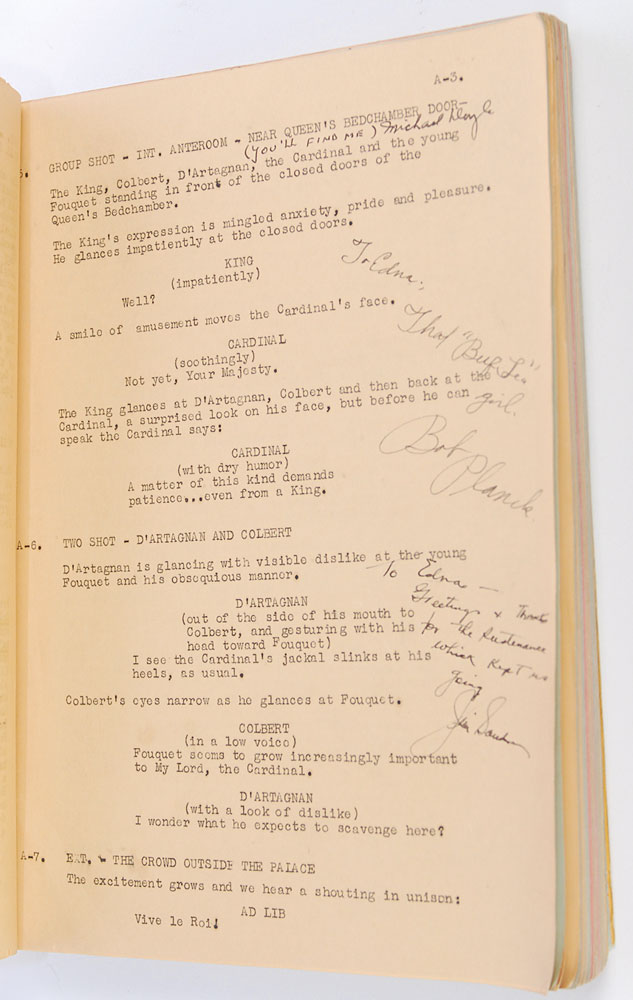 A-3.
5. GROUP SHOT - INT. ANTEROOM - NEAR QUEEN'S BEDCHAMBER DOOR-
(YOU'LL FIND ME) Michael
The King, Colbert, D'Artagnan, the Cardinal and the young
Fouquet standing in front of the closed doors of the
Queen's Bedchamber.
The King's expression is mingled anxiety, pride and pleasure.
He glances impatiently at the closed doors.
KING
(impatiently)
Well?
To Edna,
A smile of amusement moves the Cardinal's face.
That
CARDINAL
(soothingly)
Not yet, Your Majesty.
The King glances at D'Artagnan, Colbert and then back at the
girl.
Cardinal, a surprised look on his face, but before he can
speak the Cardinal says:
Bob
Planck
CARDINAL
(with dry humor)
A matter of this kind demands
patience...even from a King.
A-6. TWO SHOT - D'ARTAGNAN AND COLBERT
D'Artagnan is glancing with visible dislike at the young
Fouquet and his obsequious manner.
To Edna —
Greetings & Thanks
for the Sustenance
which kept us
going
Jim
D'ARTAGNAN
(out of the side of his mouth to
Colbert, and gesturing with his
head toward Fouquet)
I see the Cardinal's jackal slinks at his
heels, as usual.
Colbert's eyes narrow as he glances at Fouquet.
COLBERT
(in a low voice)
Fouquet seems to grow increasingly important
to My Lord, the Cardinal.
D'ARTAGNAN
(with a look of dislike)
I wonder what he expects to scavenge here?
A-7. EXT. - THE CROWD OUTSIDE THE PALACE
The excitement grows and we hear a shouting in unison:
AD LIB
Vive le Roi!